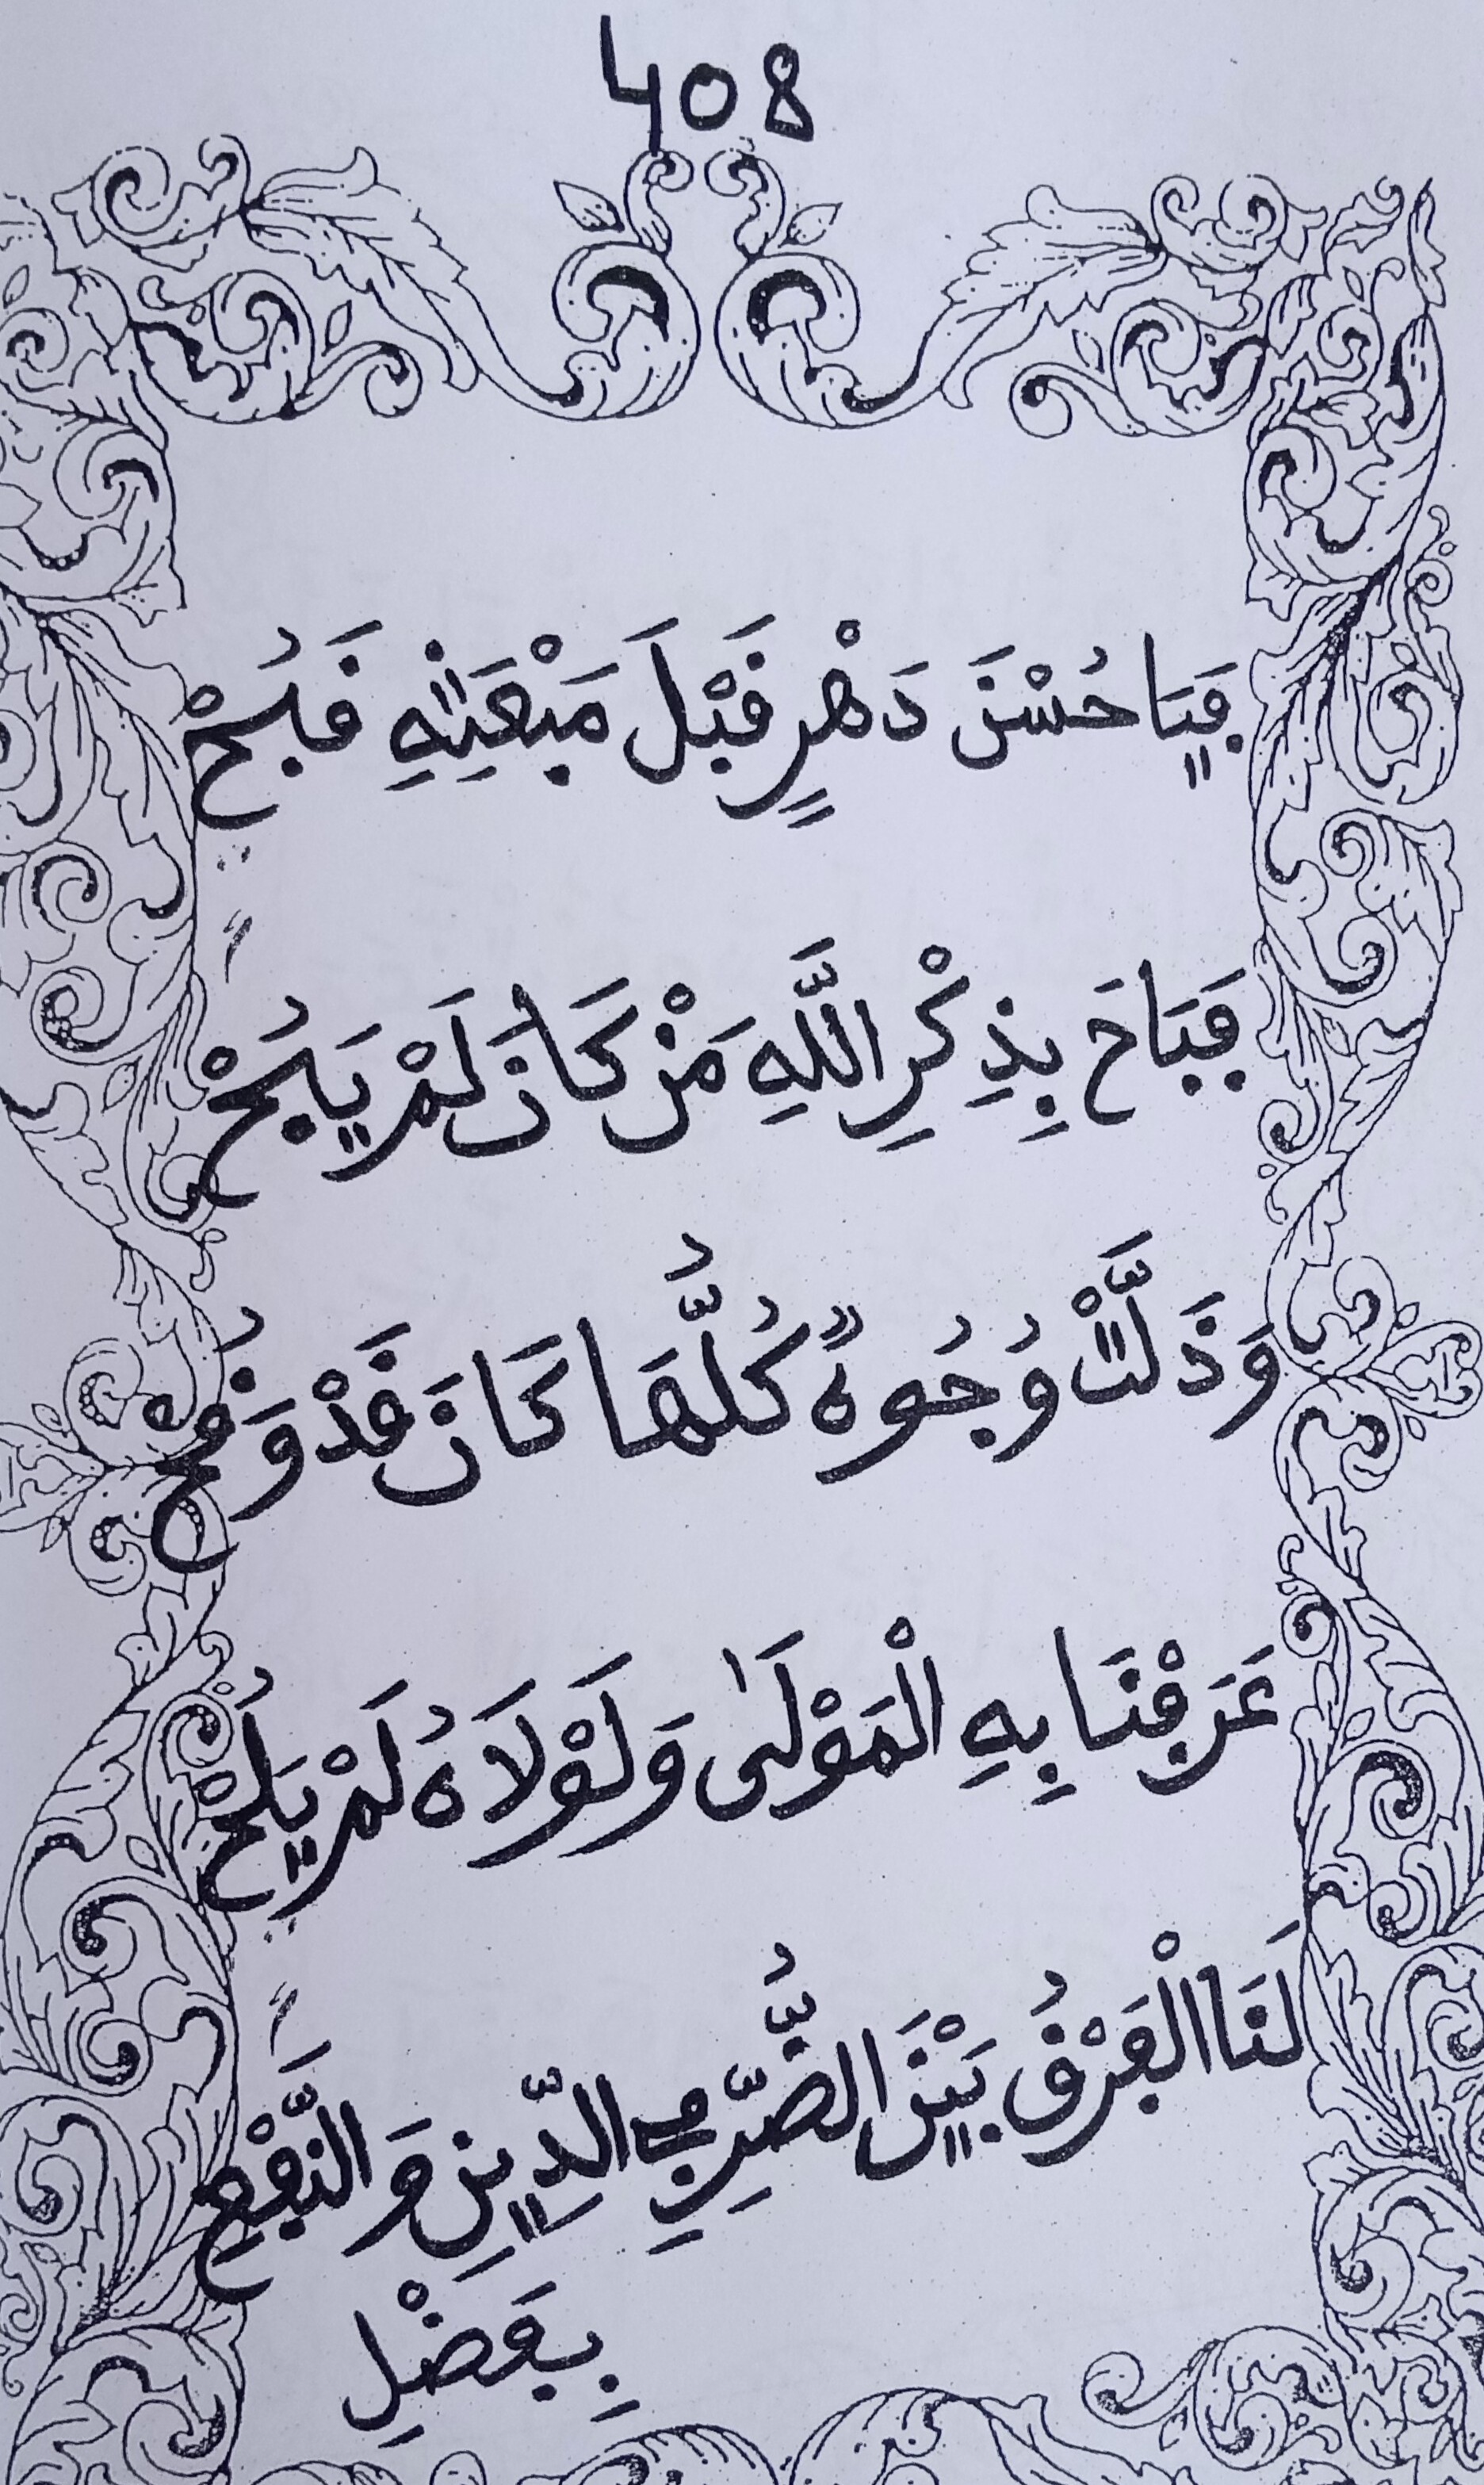 408
فَيَا حُسْنَ دَهْرٍ قَبْلَ مَبْعَثِهِ قَبُحْ
فَبَاحَ بِذِكْرِ اللَّهِ مَنْ كَانَ لَمْ يَبُحْ
وَذَلَّتْ وُجُوهٌ كُلُّهَا كَانَ قَدْ وَقُحْ
عَرَفْنَا بِهِ الْمَوْلَىٰ وَلَوْلَاهُ لَمْ يَلُحْ
لَنَا الْفَرْقُ بَيْنَ الضُّرِّ فِي الدِّينِ وَالنَّفْعِ
بِفَضْلِ